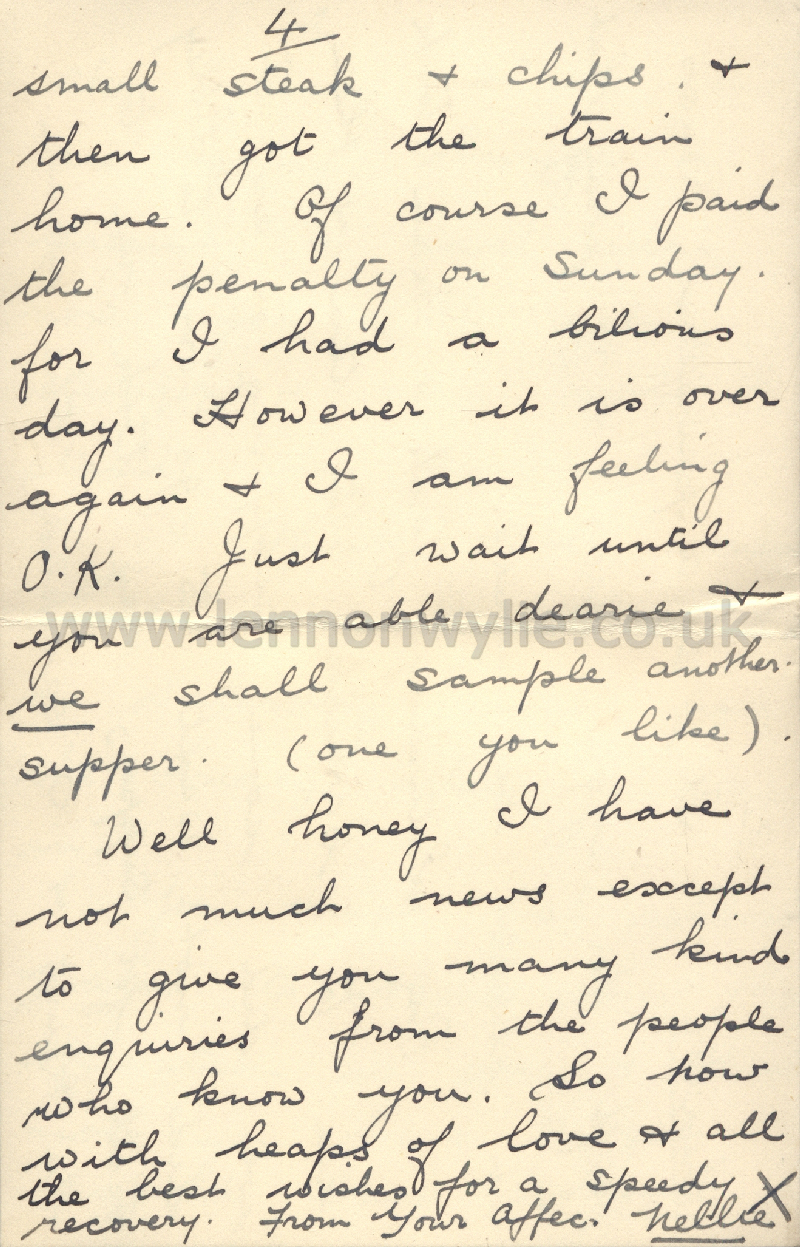 4
small steak & chips. &
then got the train
home. Of course I paid
the penalty on Sunday.
for I had a bilious
day. However it is over
again & I am feeling
O.K. Just wait until
www.lennonwylie.co.uk
you are able dearie &
we shall sample another.
supper. (one you like).
Well honey I have
not much news except
to give you many kind
enquiries from the people
who know you. So now
with heaps of love & all
the best wishes for a speedy
recovery. From Your Affec. Nellie X